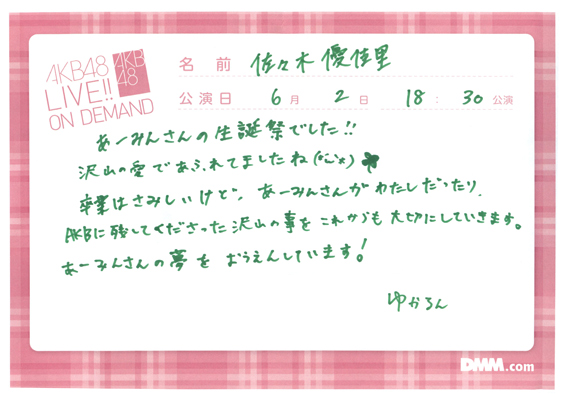 AKB48
LIVE!!
ON DEMAND
AKB
48
名前 佐々木優佳里
公演日 6月 2日 18:30公演
あーみんさんの生誕祭でした!!
沢山の愛であふれてましたね
卒業はさみしいけど、あーみんさんがわたしだったり、
AKBに残してくださった沢山の事をこれからも大切にしていきます。
あーみんさんの夢をおうえんしています!
ゆかるん
DMM.com